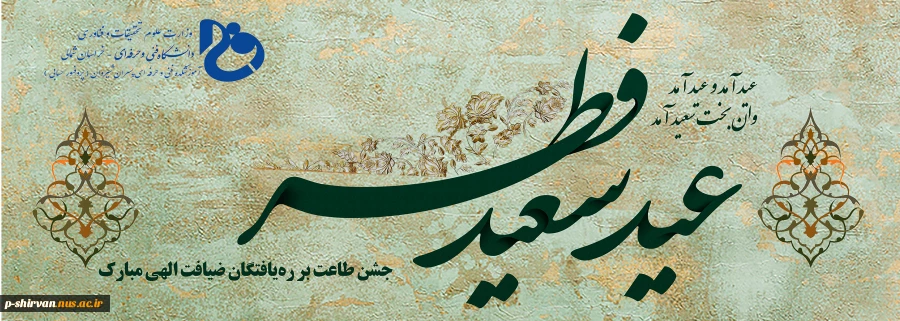 وزارت علوم، تحقیقات و فناوری
دانشگاه فنی و حرفه‌ای - خراسان شمالی
آموزشکده فنی و حرفه ای پسران شیروان (پروفسور حسابی)
عید آمد و عید آمد
وان بخت سعید آمد
عید سعید فطر
جشن طاعت بر ره یافتگان ضیافت الهی مبارک
p-shirvan.nus.ac.ir